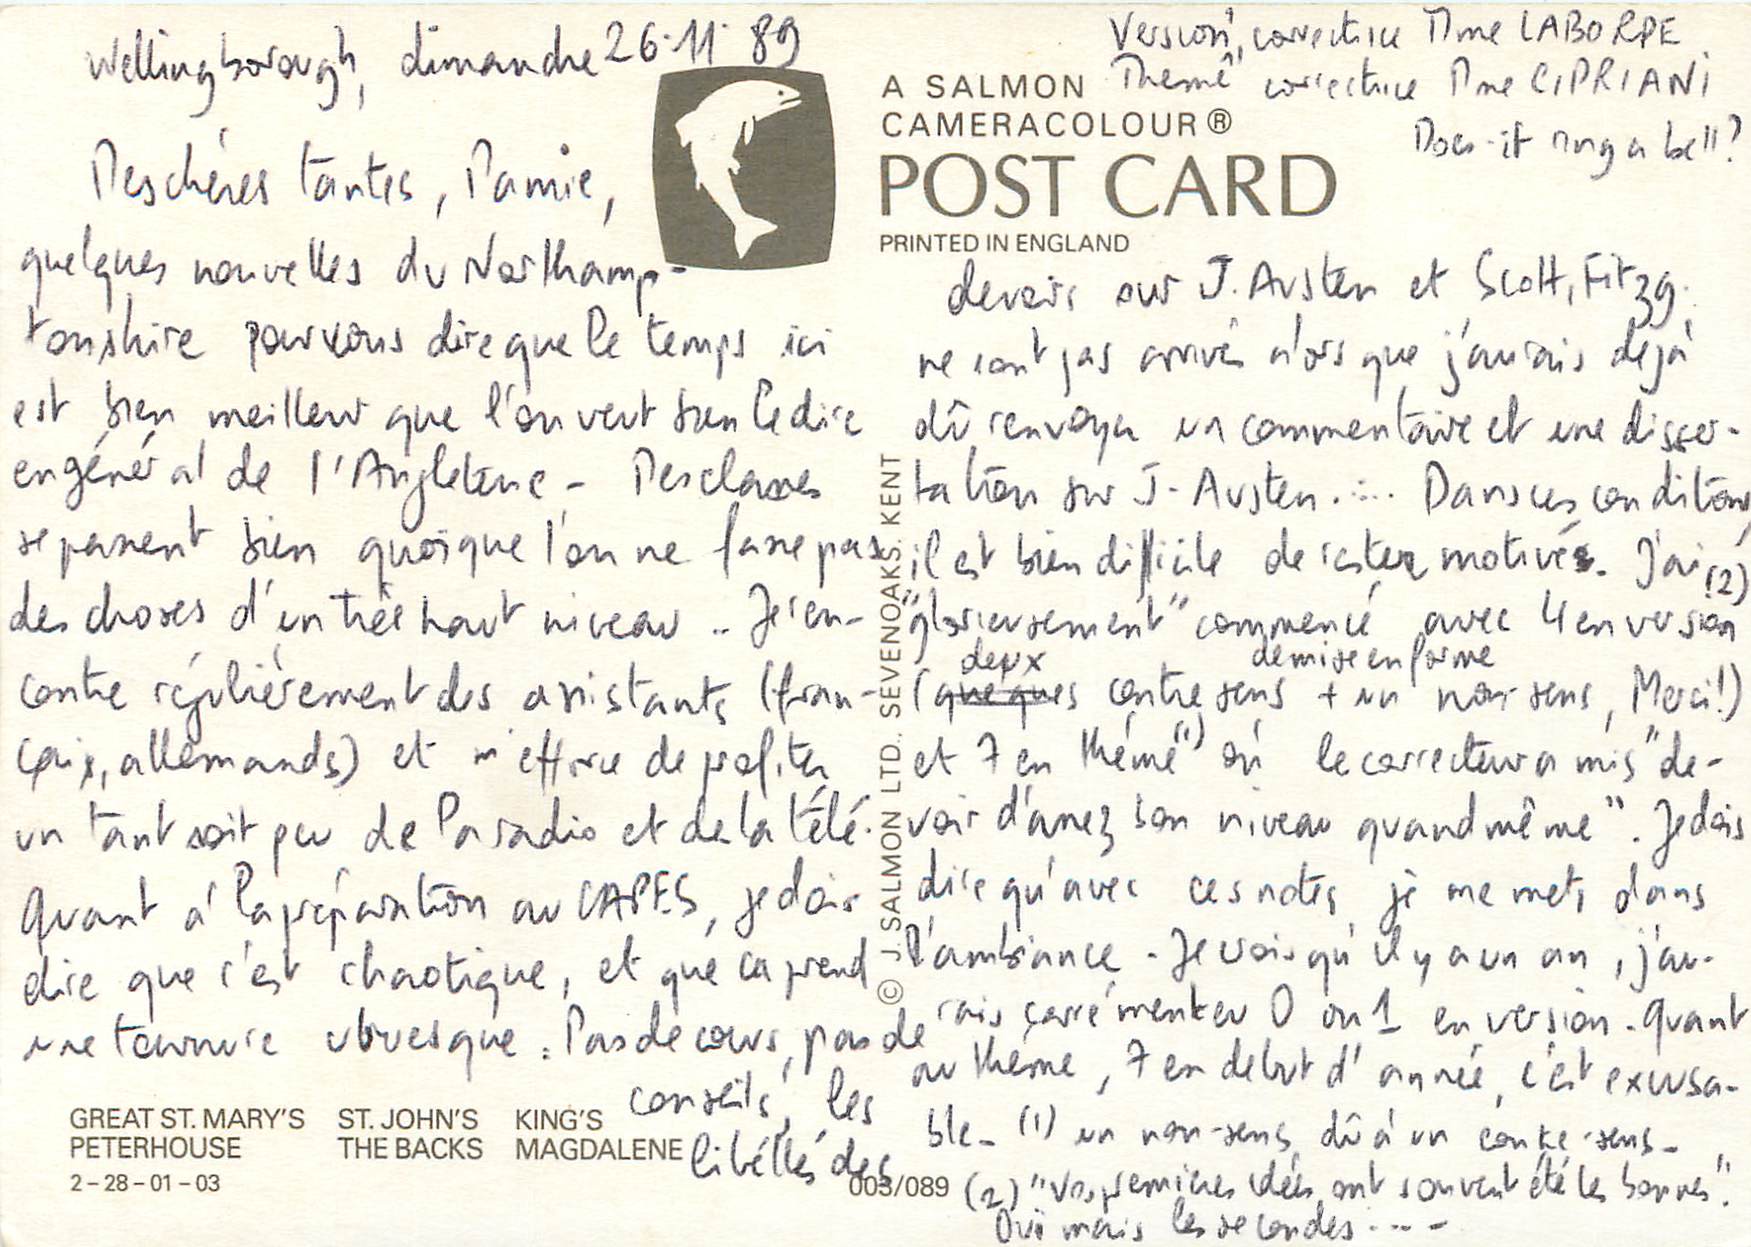 Wellingborough, dimanche 26.11.89
Mes chères tantes, Mamie,
quelques nouvelles du Northamp-
tonshire pour vous dire que le temps ici
est bien meilleur que l'on veut bien le dire
en général de l'Angleterre - Mes classes
se passent bien quoique l'on ne fasse pas
des choses d'un très haut niveau .. Je ren-
contre régulièrement des assistants (fran-
çais, allemands) et m'efforce de profiter
un tant soit peu de la radio et de la télé.
Quant à la préparation au CAPES, je dois
dire que c'est chaotique, et que ça prend
une tournure ubuesque : Pas de cours, pas de
conseils, les
libéllés des
GREAT ST. MARY'S ST. JOHN'S KING'S
PETERHOUSE THE BACKS MAGDALENE
2–28–01–03
Version, correctrice Mme LABORDE
Thème correctrice Mme CIPRIANI
Does it ring a bell?
A SALMON
CAMERACOLOUR®
POST CARD
PRINTED IN ENGLAND
© J. SALMON LTD. SEVENOAKS. KENT
devoirs sur J. Austen et Scott, Fitzg.
ne sont pas arrivés alors que j'aurais déjà
dû renvoyer un commentaire et une disser-
tation sur J. Austen.... Dans ces conditions
il est bien difficile de rester motivé. J'ai (2)
"glorieusement" commencé avec 4 en version
deux de mise en forme
(quelques contre sens + un non-sens, Merci!)
et 7 en thème (1) où le correcteur a mis "de-
voir d'assez bon niveau quand même". Je dois
dire qu'avec ces notes, je me mets dans
l'ambiance - Je vois qu'il y a un an, j'au-
rais carrément eu 0 ou 1 en version - Quant
au thème, 7 en début d'année, c'est excusa-
ble - (1) un non-sens dû à un contre-sens -
003/089
(2) "Vos premières idées ont souvent été les bonnes".
Oui mais les secondes ----